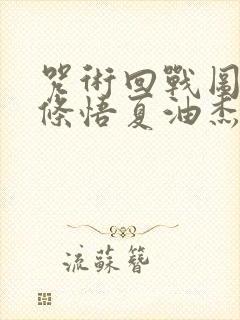 咒術回戰圖
條悟夏油杰
流蘇簪